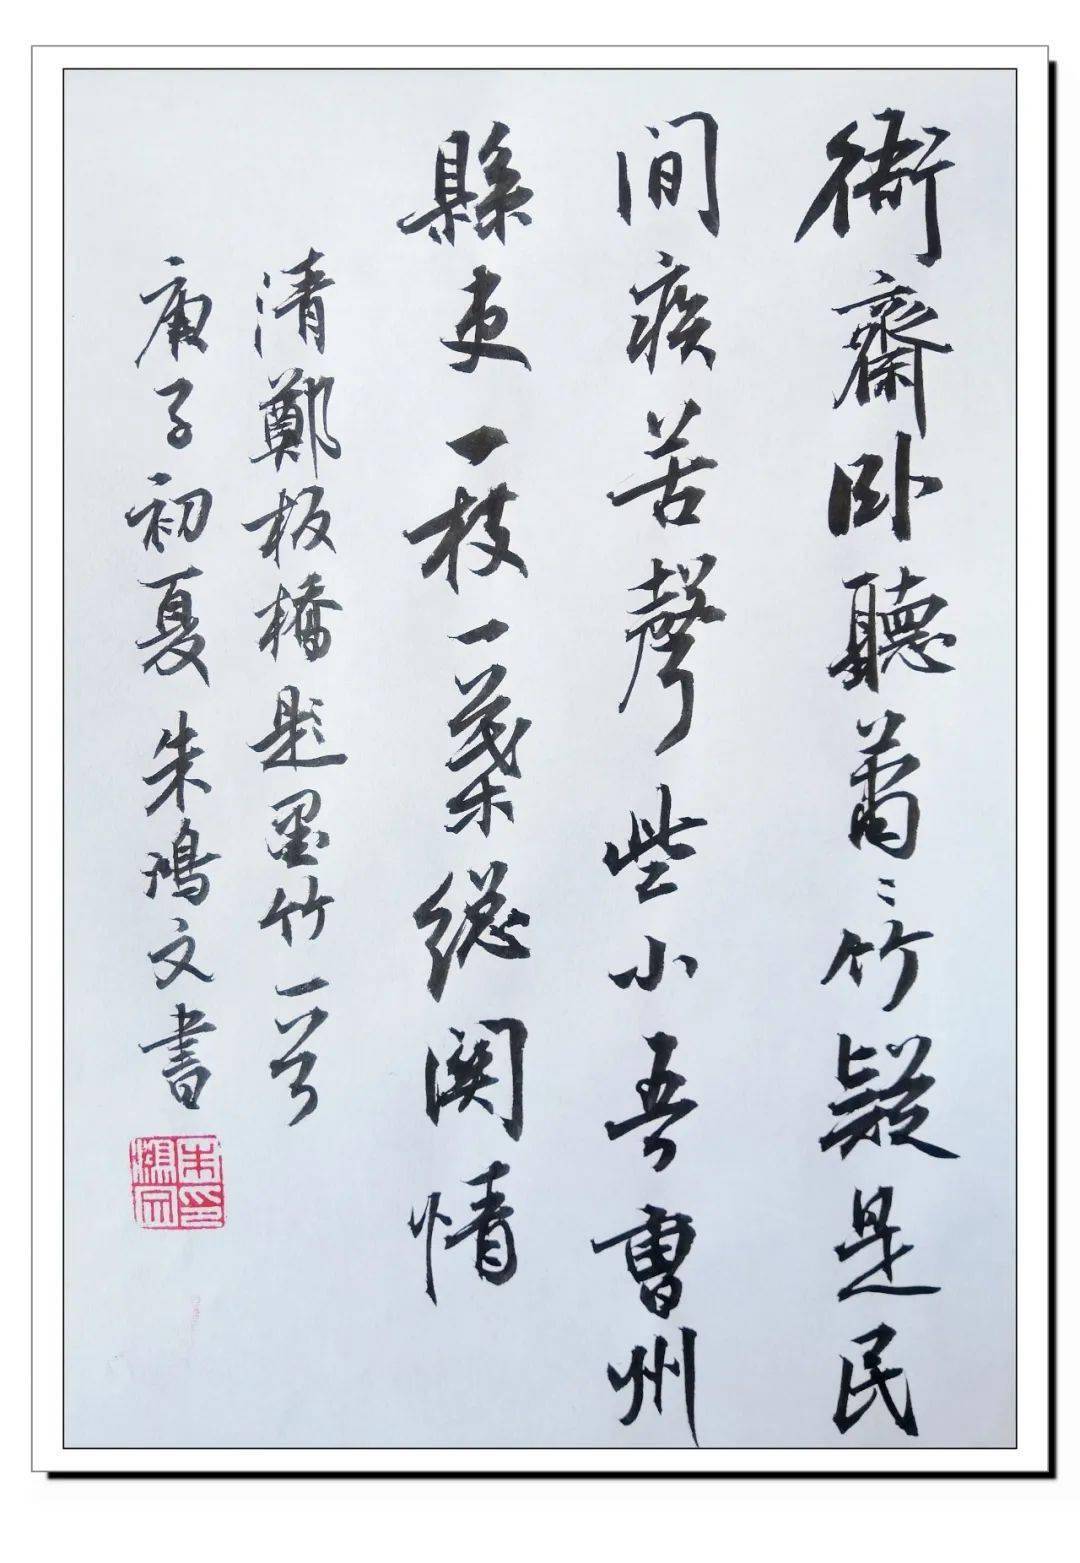 衙齋卧聽蕭〻竹疑是民
間疾苦聲些小吾曹州
縣吏一枝一葉總關情
清鄭板橋題墨竹一首
庚子初夏朱鴻文書
朱印
鴻